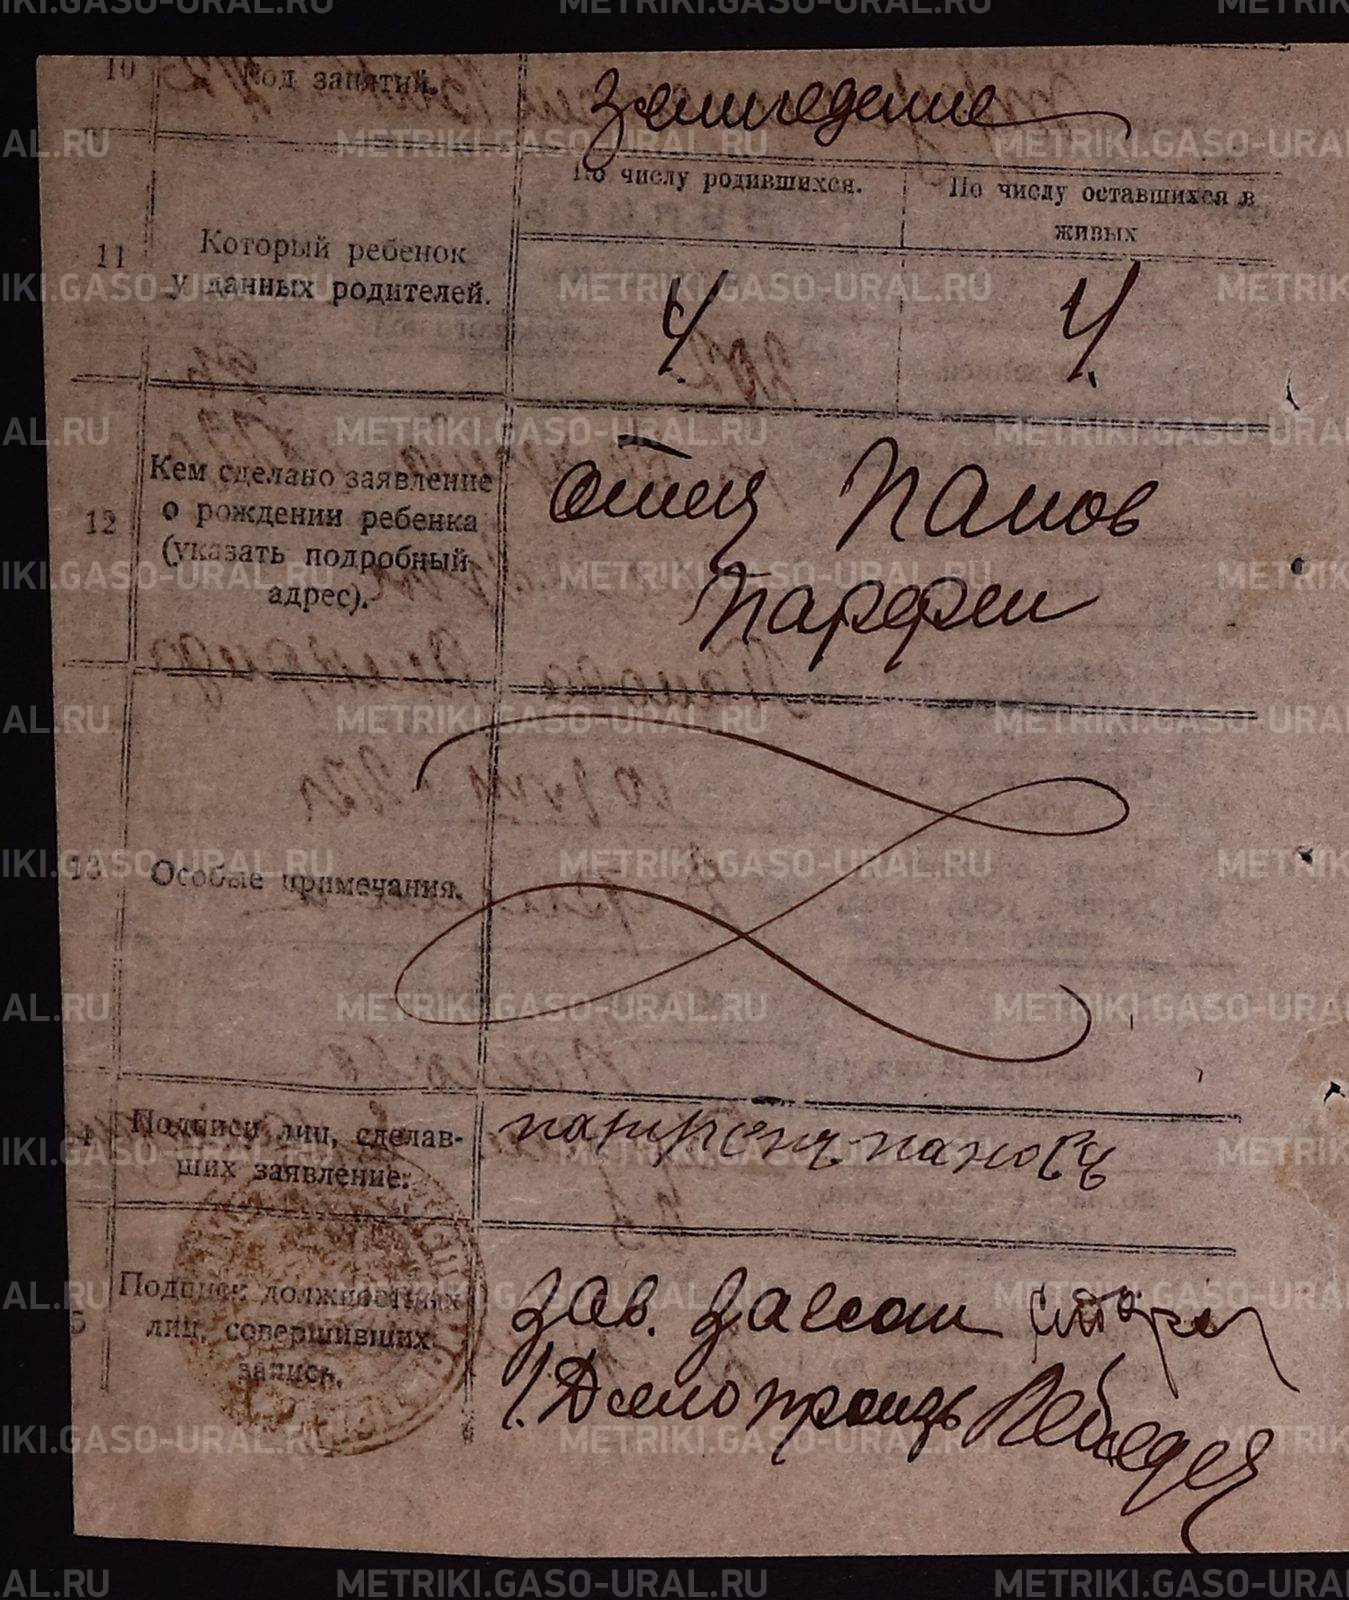 10
Род занятий.
Земледелие
11
Который ребенок
у данных родителей.
По числу родившихся.
По числу оставшихся в
живых
4.
4.
12
Кем сделано заявление
о рождении ребенка
(указать подробный
адрес).
Отец Панов
Парфен
13
Особые примечания.
Подписи лиц, сделав-
ших заявление:
пановъ
5
Подписи должностных
лиц, совершивших
запись.
Зав. Загсом
Делопроизв Лебедев
METRIKI.GASO-URAL.RU